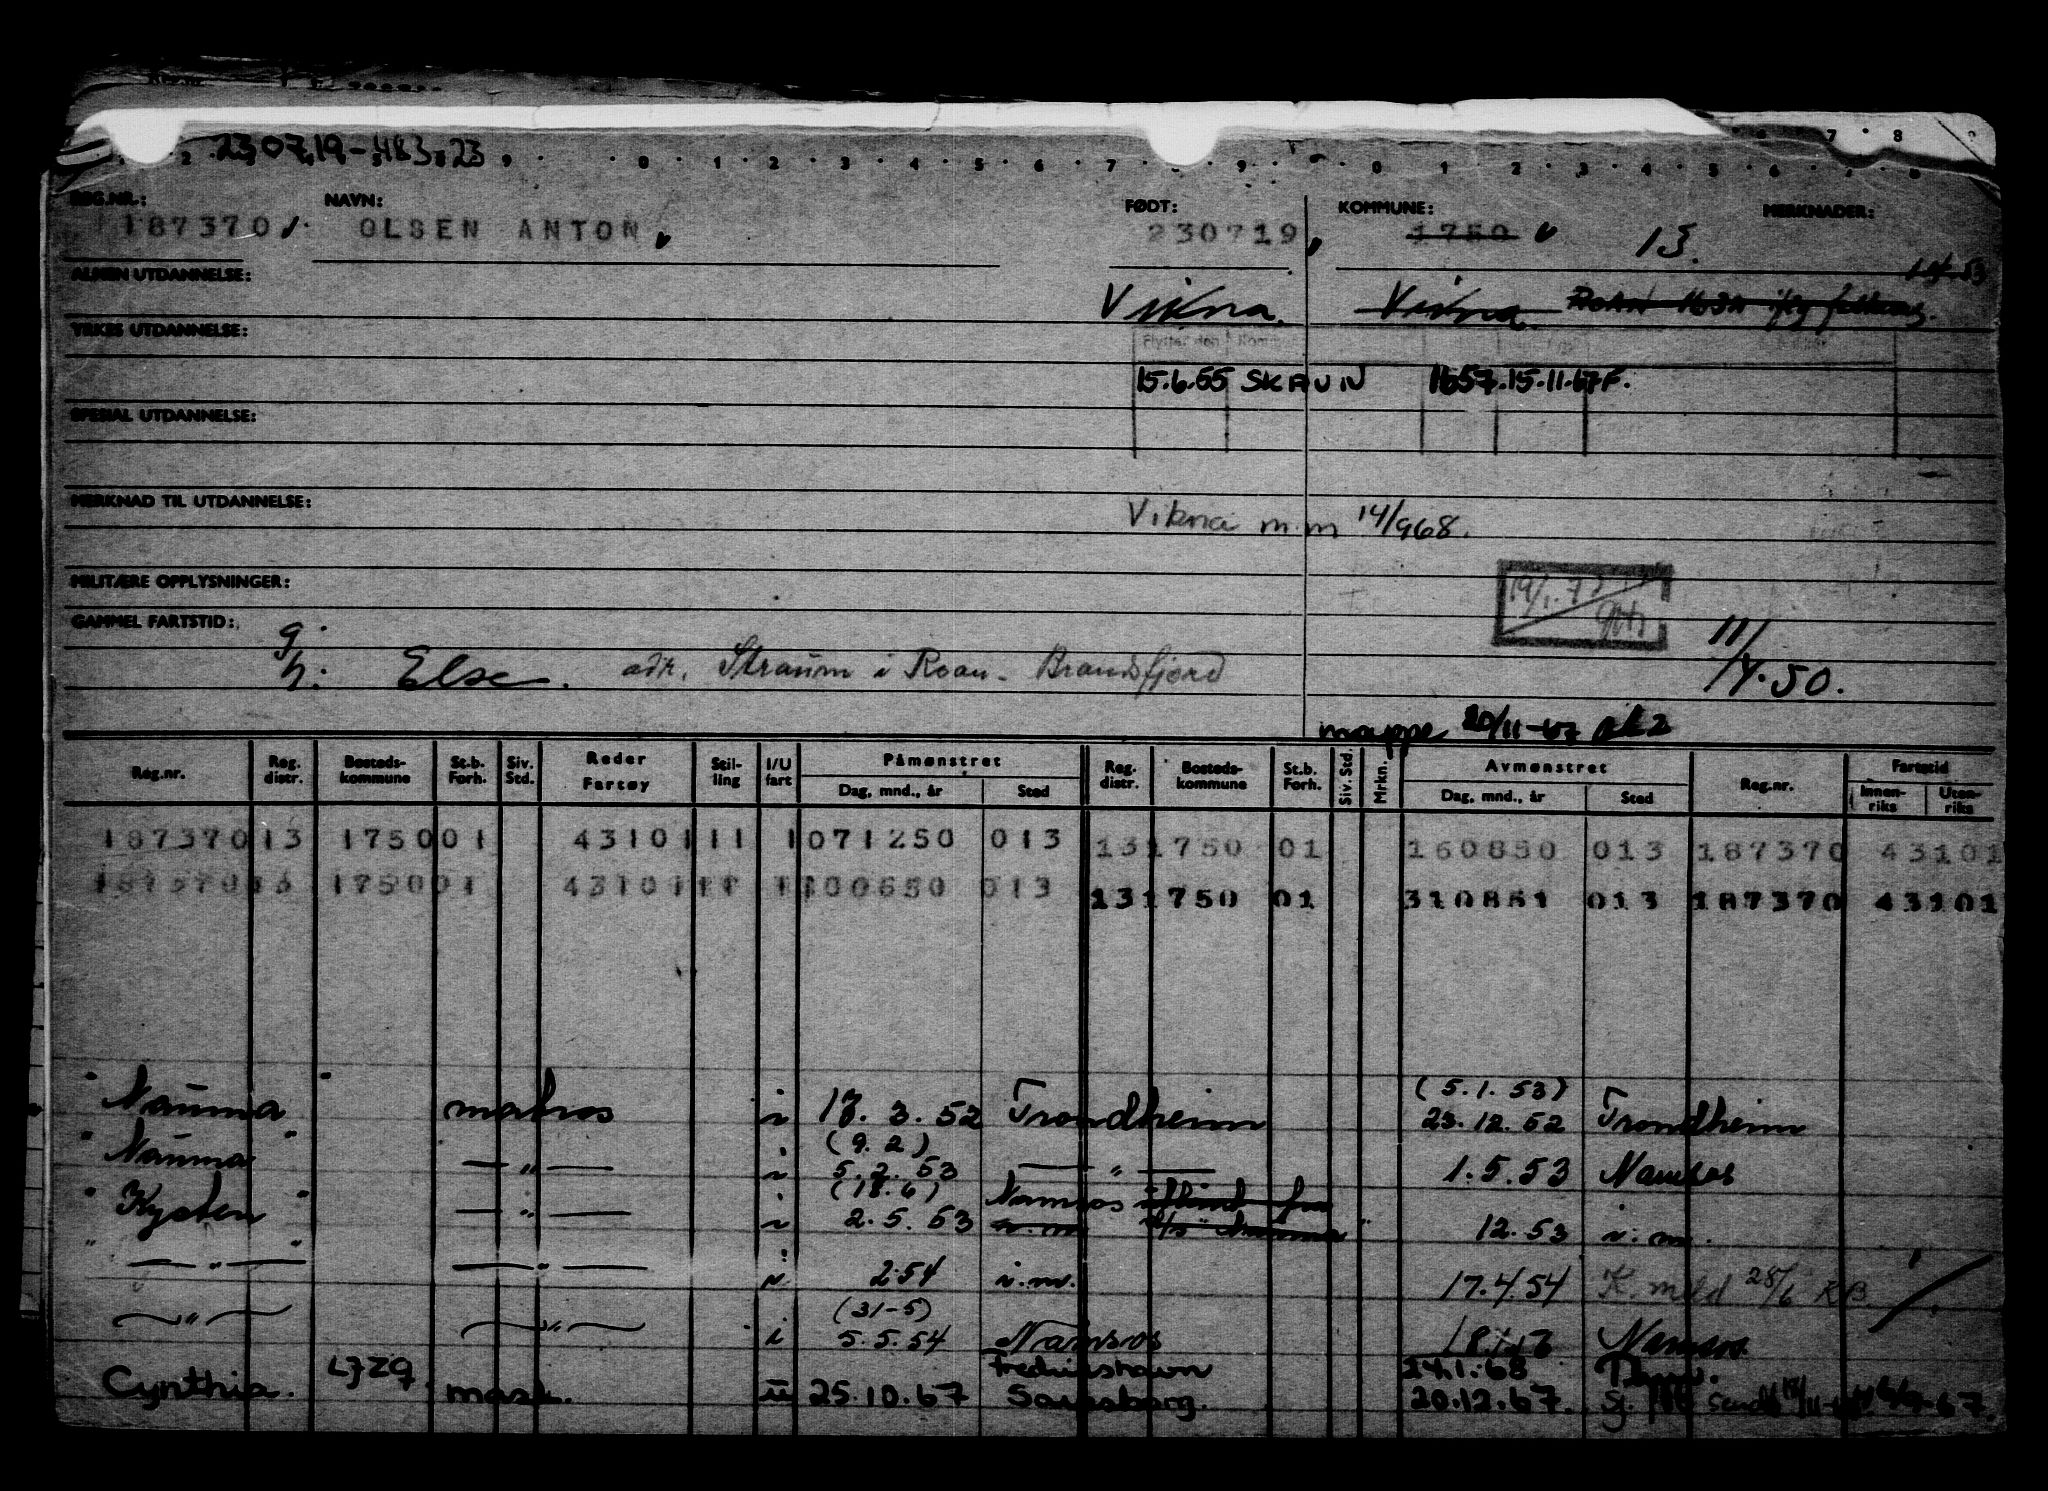 23.07.19 - 483 23
REG.NR.: NAVN: FØDT: KOMMUNE: MERKNADER:
187370 OLSEN ANTON 230719 1750 13.
ALMEN UTDANNELSE:
Vikna. Vikna.
YRKES UTDANNELSE:
15.6.55 SKAUN 1657.15.11.67F.
SPESIAL UTDANNELSE:
MERKNAD TIL UTDANNELSE:
Vikna m.m 14/968.
MILITÆRE OPPLYSNINGER:
19/1.77
GAMMEL FARTSTID:
g. 11/
h. Else. adr. Straum i Roan. Brandsfjord 14.50.
mappe 20/11-67
Reg.nr. Reg. distr. Bosteds-kommune St.b. Forh. Siv. Std. Reder Fartøy Stil-ling I/U fart Påmønstret Dag, mnd., år Sted Reg. distr. Bosteds-kommune St.b. Forh. Siv. Std. Mrkn. Avmønstret Dag, mnd., år Sted Reg.nr. Fartstid Innen-riks Uten-riks
187370 13 1750 01 43101 11 1 071250 013 13 1750 01 160850 013 187370 43101
187370 13 1750 01 43101 11 1 100650 013 13 1750 01 310851 013 187370 43101
(5.1.53)
"Nauma" matros i 17.3.52 Trondheim 23.12.52 Trondheim
(9.2)
"Nauma" — " — i 5.2.53 — " — 1.5.53 Namsos
(18.6)
"Kysten" — " — i 2.5.53 Namsos 12.53 i.m.
" — " — " — " — i 2.54 i.m. 17.4.54 K. meld 28/6 KB.
(31-5)
— " — — " — i 5.5.54 Namsos Namsos
Fredrikshavn 24.1.68
Cynthia. LJZG mask. u 25.10.67 Sarpsborg. 20.12.67.